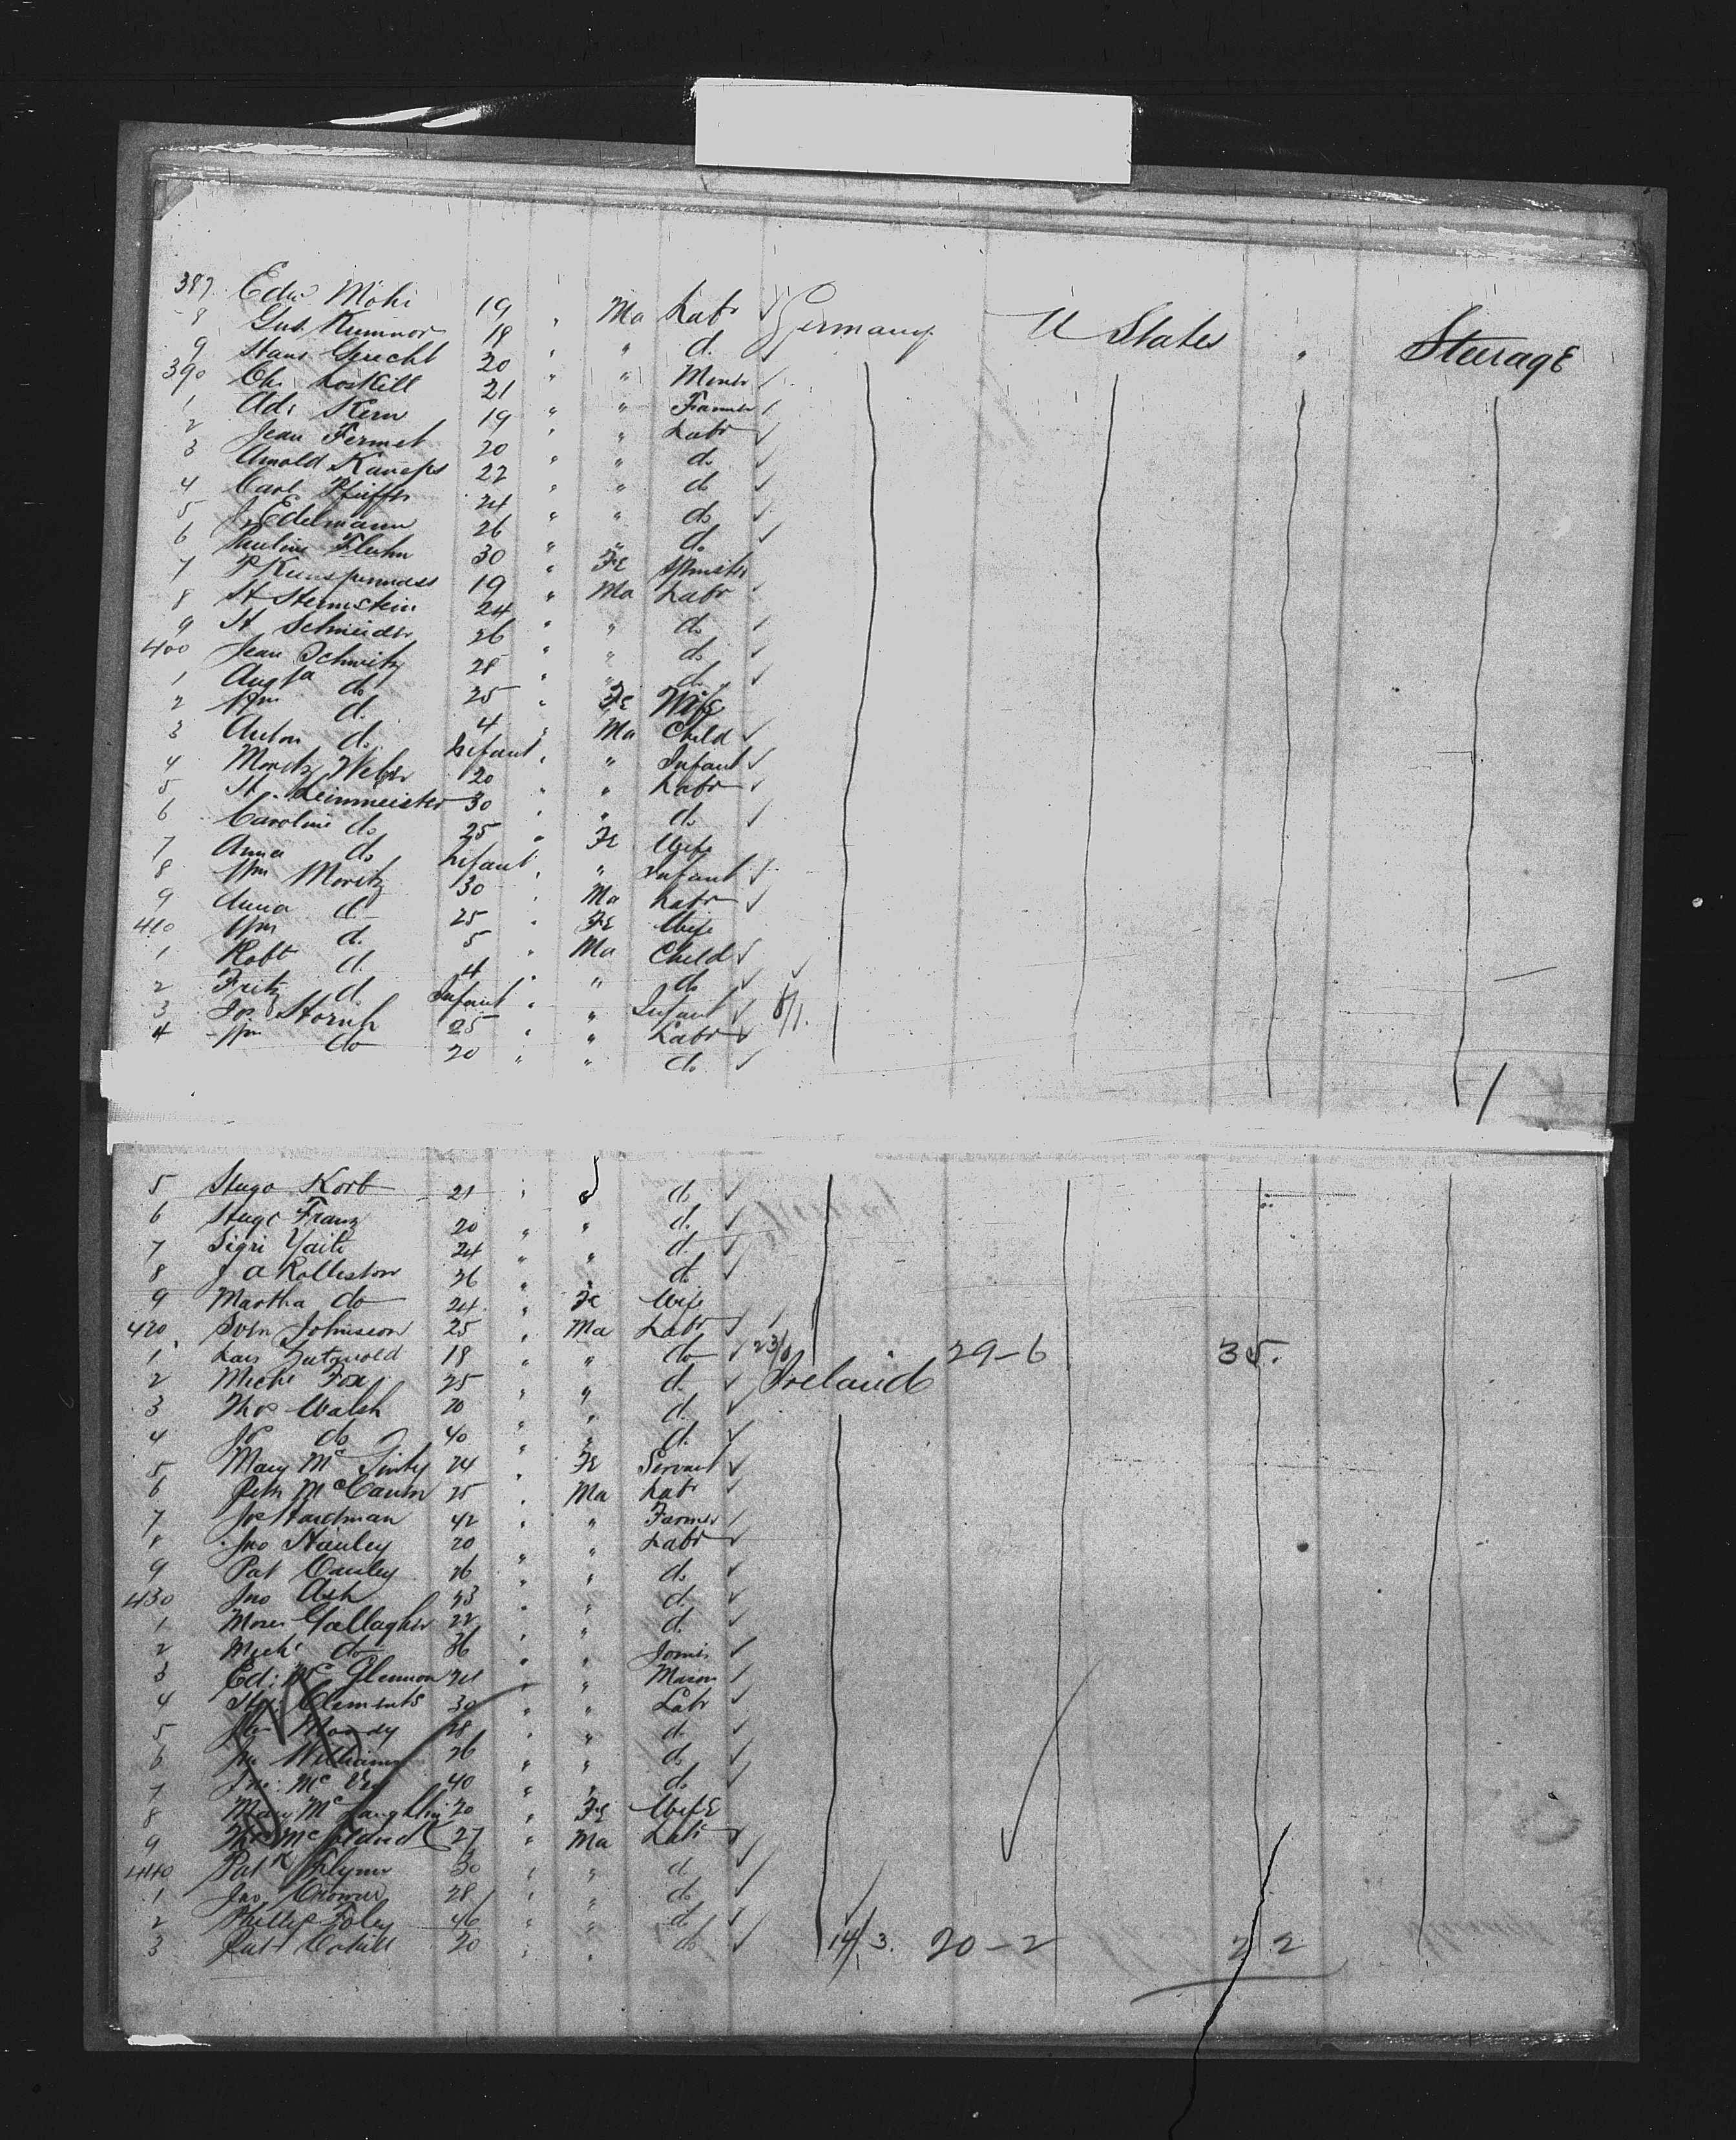 387 Edw Möhi 19 " Ma Labr ✓ Germany U States " Steerage
8 Gus. Kumnor 18 " " d.
9 Hans Gericht 20 " " Miner ✓
390 Ch. Loskill 21 " " Farmer ✓
1 Ads Kern 19 " " Labr ✓
2 Jean Fermet 20 " " do ✓
3 Arnold 22 " " do ✓
4 Carl Pfeiffer 24 " " do ✓
5 J. Edelmann 26 " " do ✓
6 Pauline Fluhn 30 " Fe Spinster
7 P 19 " Ma Labr ✓
8 H Sternstein 24 " " do ✓
9 H Schneider 26 " " do ✓
400 Jean Schmitz 28 " " d. ✓
1 Augta do 25 " Fe Wife
2 Wm d. 4 " Ma Child ✓
3 Anton do. Infant " " Infant ✓
4 Moritz Weber 20 " " Labr ✓
5 H. Leinmeister 30 " " do ✓
6 Caroline do 25 " Fe Wife
7 Anna do Infant " " Infant ✓
8 Wm Moritz 30 " Ma Labr ✓
9 Anna d 25 " Fe Wife
410 Wm d. 5 " Ma Child ✓
1 Robt d. 4 " " do ✓
2 Fritz d. Infant " " Infant ✓ 8/1.
3 Jos Storck 25 " " Labr ✓
4 Wm do 20 " " do ✓
5 Hugo Korb 21 " " do ✓
6 Hugo Franz 20 " " d. ✓
7 Sigri 24 " " d. ✓
8 J A Rolleston 26 " " do ✓
9 Martha do 24 " Fe Wife
420 Sven Johnsson 25 " Ma Labr ✓
1 Lars 18 " " do ✓ 23/6 29-6 35.
2 Michl Fox 25 " " d. ✓ Ireland
3 Thos Walsh 20 " " d. ✓
4 Js do 40 " " d. ✓
5 Mary Mc Ginty 24 " Fe Servant ✓
6 Petr McCann 25 " Ma Labr ✓
7 Jos Hardman 42 " " Farmer ✓
8 Jno Hanley 20 " " Labr ✓
9 Pat Cauley 26 " " do ✓
430 Jno Ash 23 " " d. ✓
1 Moses Gallagher 22 " " d. ✓
2 Michl do 36 " " Joiner ✓
3 Ed: Mc Glennon 24 " " Mason ✓
4 Clements 30 " " Labr ✓
5 Moody 28 " " do ✓
6 Jno Williams 26 " " do ✓
7 Jno: Mc 40 " " do ✓
8 Mary Mc Laughlin 20 " Fe Wife
9 Thos Mc 27 " Ma Labr ✓
440 Patk Flynn 30 " " d. ✓
1 Jno 28 " " do ✓
2 Phillip Foley 46 " " do ✓
3 Patk 20 " " do ✓ 14/3. 20-2 22